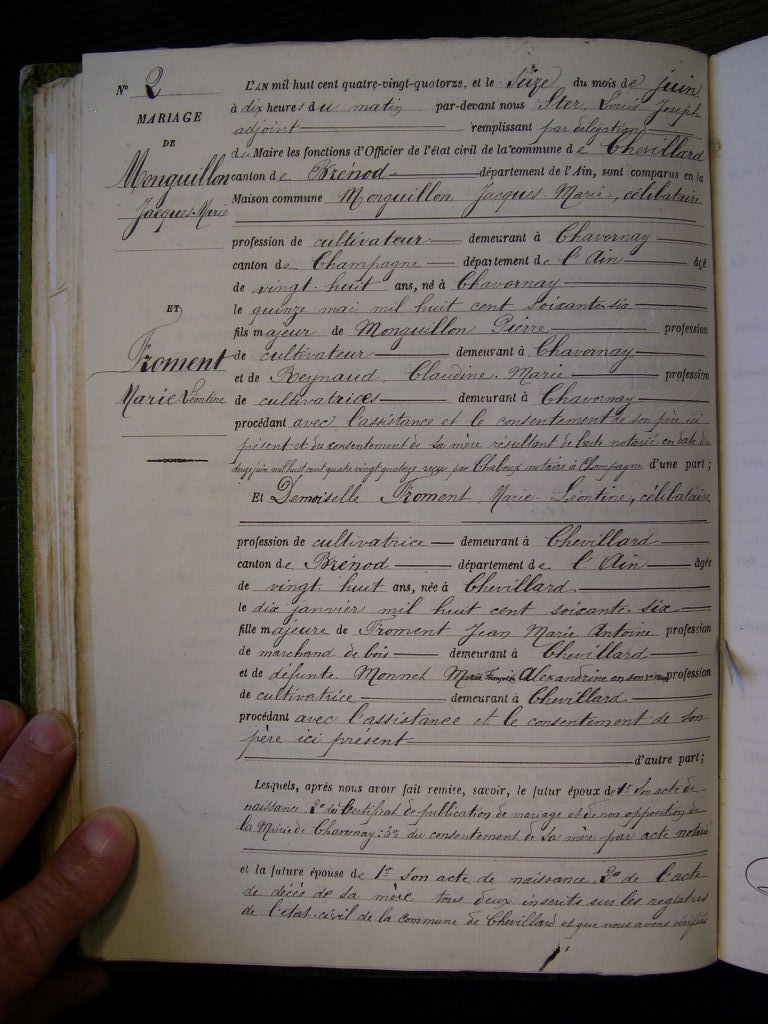 N° 2
MARIAGE
DE
Monguillon
Jacques-Marie
ET
Froment
Marie Léontine
L'AN mil huit cent quatre-vingt-quatorze, et le Seize du mois de juin
à dix heures du matin par-devant nous Ster, Louis Joseph
adjoint remplissant par délégation
du Maire les fonctions d'Officier de l'état civil de la commune de Chevillard
canton de Brénod département de l'Ain, sont comparus en la
Maison commune Monguillon, Jacques-Marie, célibataire
profession de cultivateur demeurant à Chavornay
canton de Champagne département de l'Ain âgé
de vingt-huit ans, né à Chavornay
le quinze mai mil huit cent soixante-six
fils majeur de Monguillon Pierre profession
de cultivateur demeurant à Chavornay
et de Reynaud, Claudine-Marie profession
de cultivatrices demeurant à Chavornay
procédant avec l'assistance et le consentement de son père ici
présent et du consentement de sa mère résultant de l'acte notarié en date du
douze juin mil huit cent quatre vingt quatorze reçu par Chaloux notaire à Champagne d'une part;
Et Demoiselle Froment, Marie-Léontine, célibataire
profession de cultivatrice demeurant à Chevillard
canton de Brénod département de l'Ain âgée
de vingt huit ans, née à Chevillard
le dix janvier mil huit cent soixante-six
fille majeure de Froment Jean Marie Antoine profession
de marchand de bois demeurant à Chevillard
et de défunte Monnet Marie Françoise Alexandrine en son vivant profession
de cultivatrice demeurant à Chevillard
procédant avec l'assistance et le consentement de son
père ici présent
d'autre part;
Lesquels, après nous avoir fait remise, savoir, le futur époux de 1° Son acte de
naissance 2° du Certificat de publication de mariage et de non opposition de
la Mairie de Chavornay: 3° du consentement de sa mère par acte notarié
et la future épouse de 1° son acte de naissance 2° de l'acte
de décès de sa mère tous deux inscrits sur les registres
de l'état-civil de la commune de Chevillard et que nous avons vérifiés